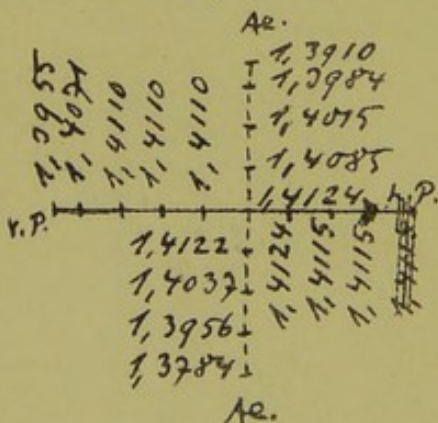 Ae.
1,3910
1,3984
1,4015
1,4085
1,3955
1,4071
1,4110
1,4110
1,4110
1,4124
v.P.
h.P.
1,4122
1,4037
1,3956
1,3784
1,4124
1,4115
1,4115
Ae.